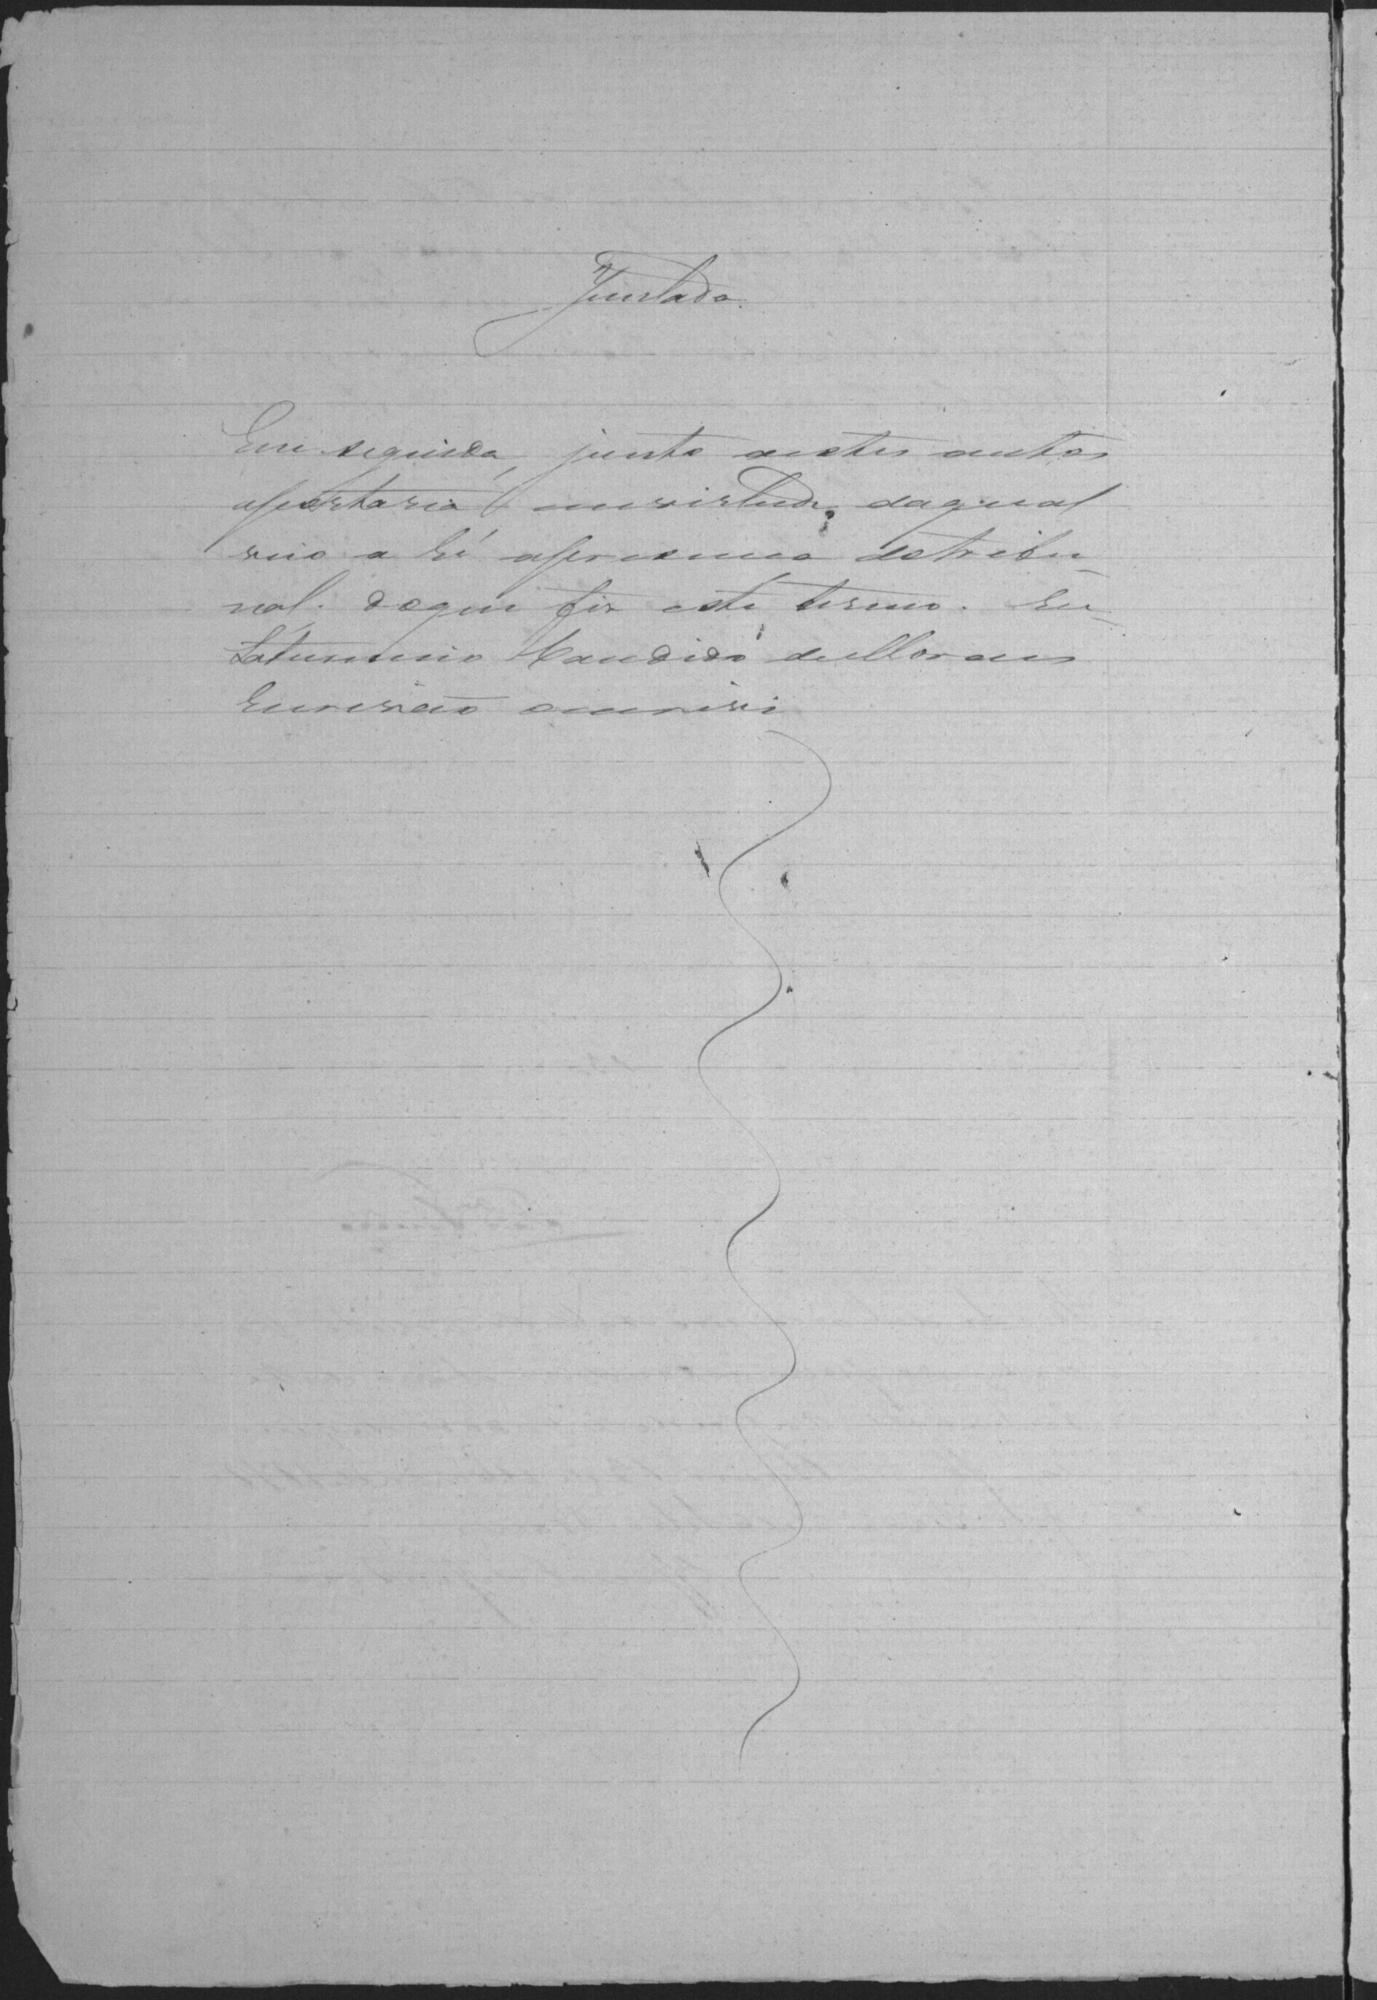 Juntada.
Em seguida, junto a estes autos
aportaria em virtude da qual
veio a Ré apresença do tribu-
nal. Do que fiz este termo. Eu
Saturnino Candido de Moraes
Escrivão o escrivi